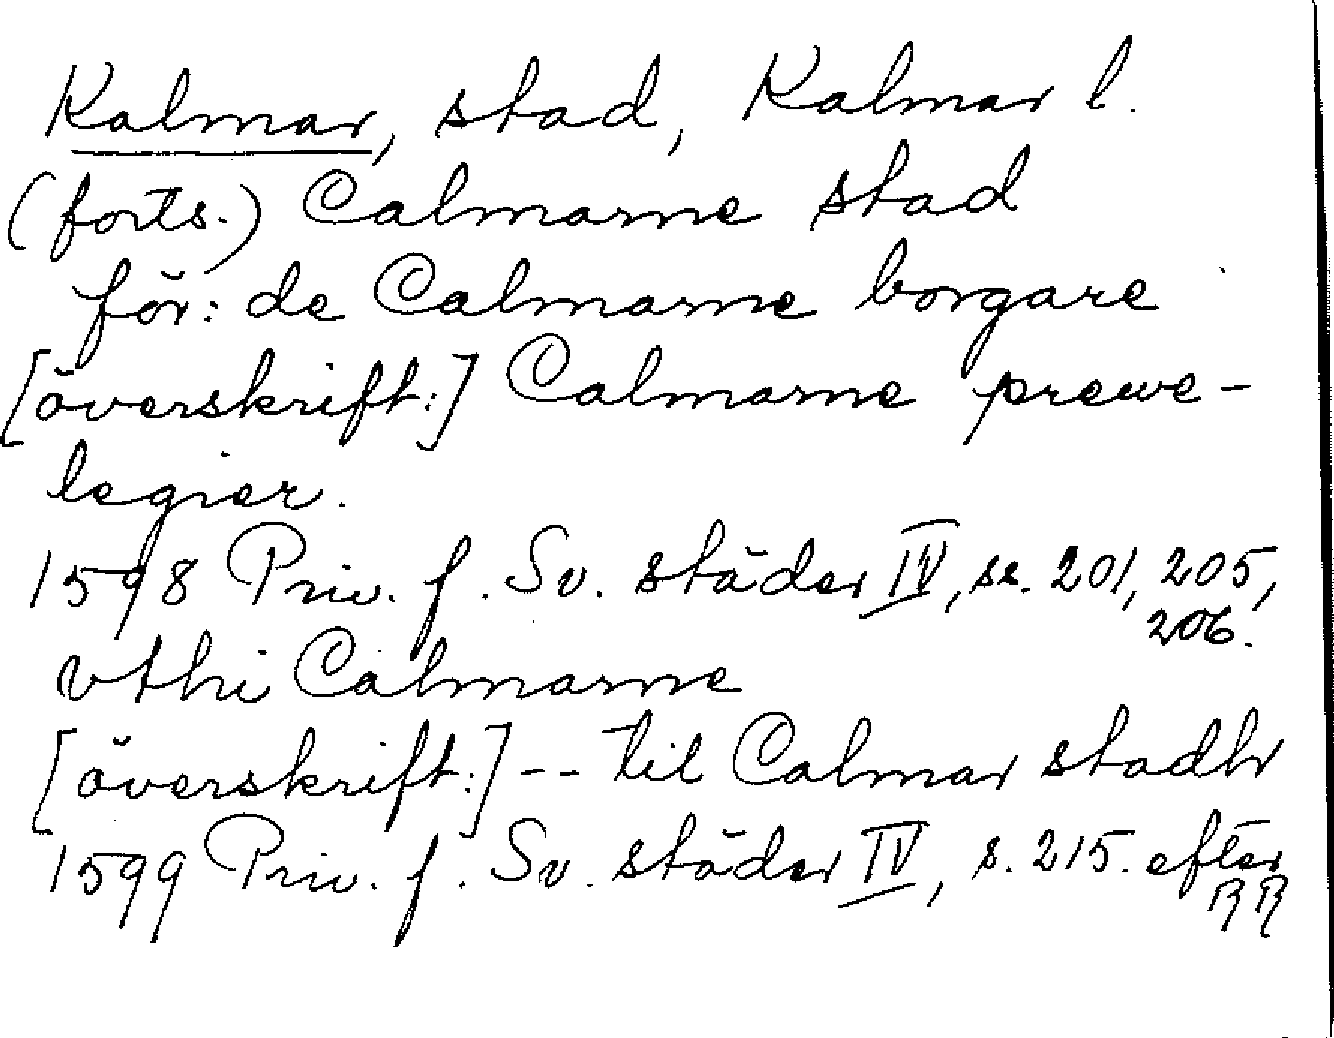 Kalmar, stad, Kalmar l.
(forts.) Calmarne stad
för: de Calmarne borgare
[överskrift:] Calmarne prewe-
legier.
1598 Priv. f. Sv. städer IV, ss. 201, 205,
206.
vthi Calmarne
[överskrift:] -- til Calmar stadh
1599 Priv. f. Sv. städer IV, s. 215. efter
RR